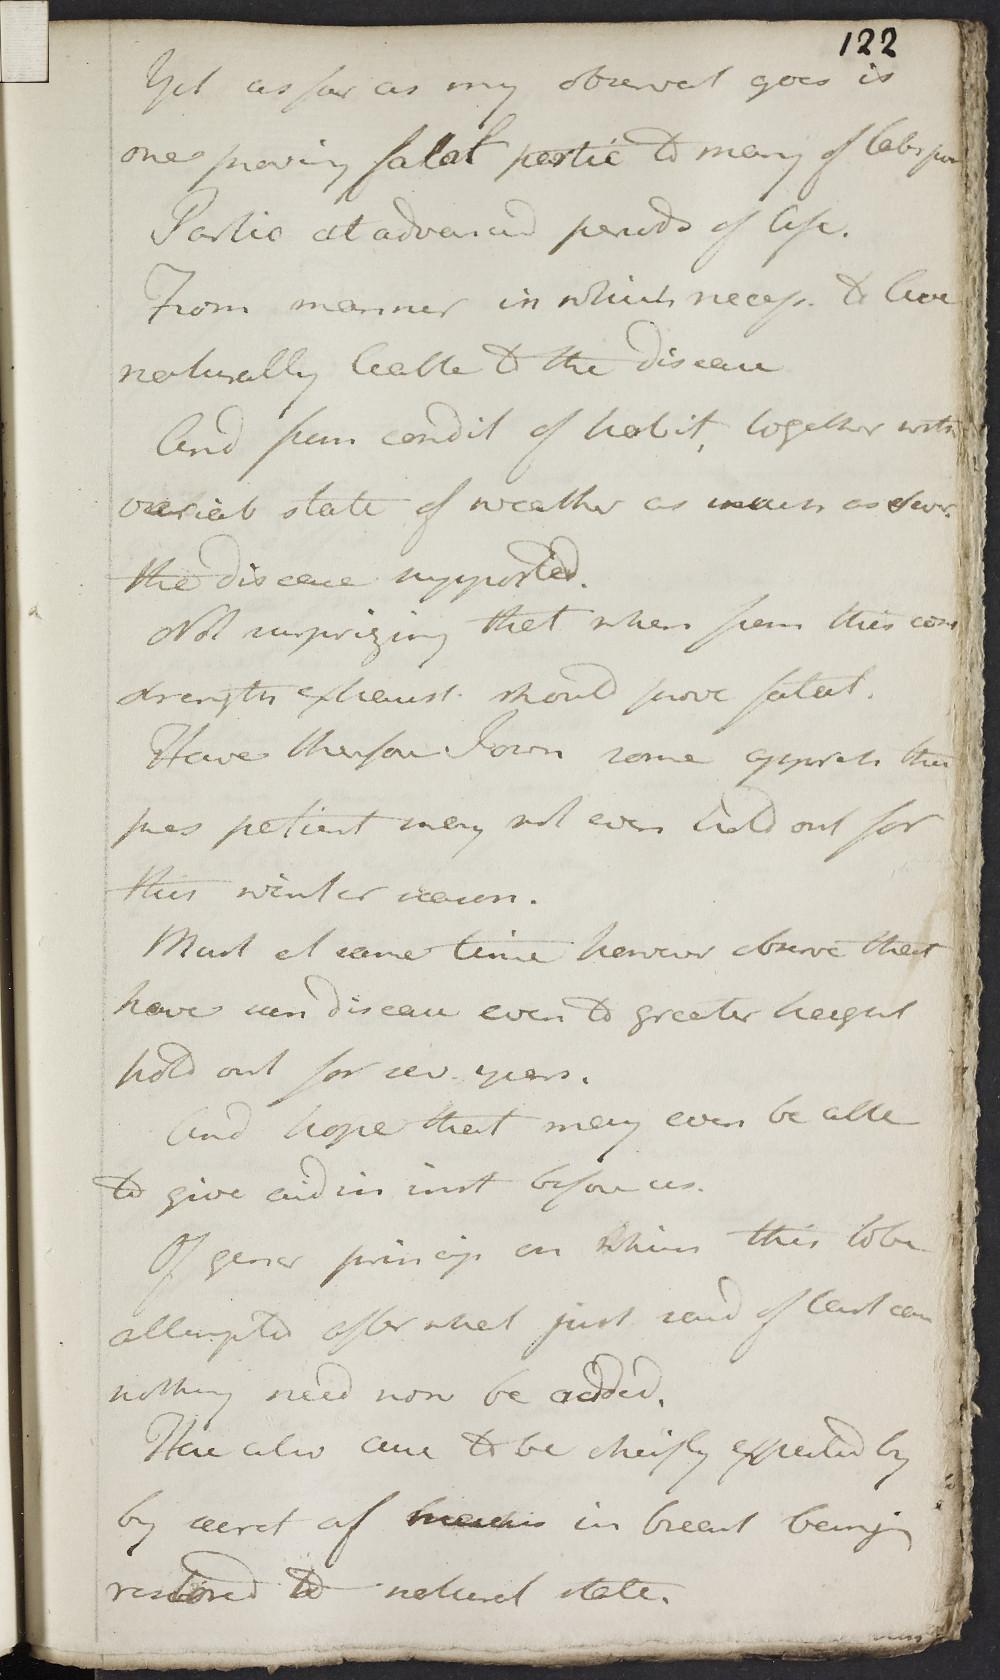 122
Yet as far as my observat goes is
one proving fatal partic to many of labr poor
Partic at advanced periods of life.
From manner in which necess. to live
naturally liable to the disease
And from condit of habit, together with
variab state of weather as much as ever.
the disease supported.
Not surprizing that when from this cons
strength exhaust. should prove fatal.
Have therefore I own some appreh this
pres patient may not even hold out for
this winter season.
Must at same time however observe that
have seen disease even to greater height
hold out for sev. years.
And hope that may even be able
to give aid in inst before us.
Of gener princip on which this to be
attempted after what just said of last case
nothing need now be added.
Here also cure to be cheifly expected by
by secret of mucus in breast being
restored to natural state.